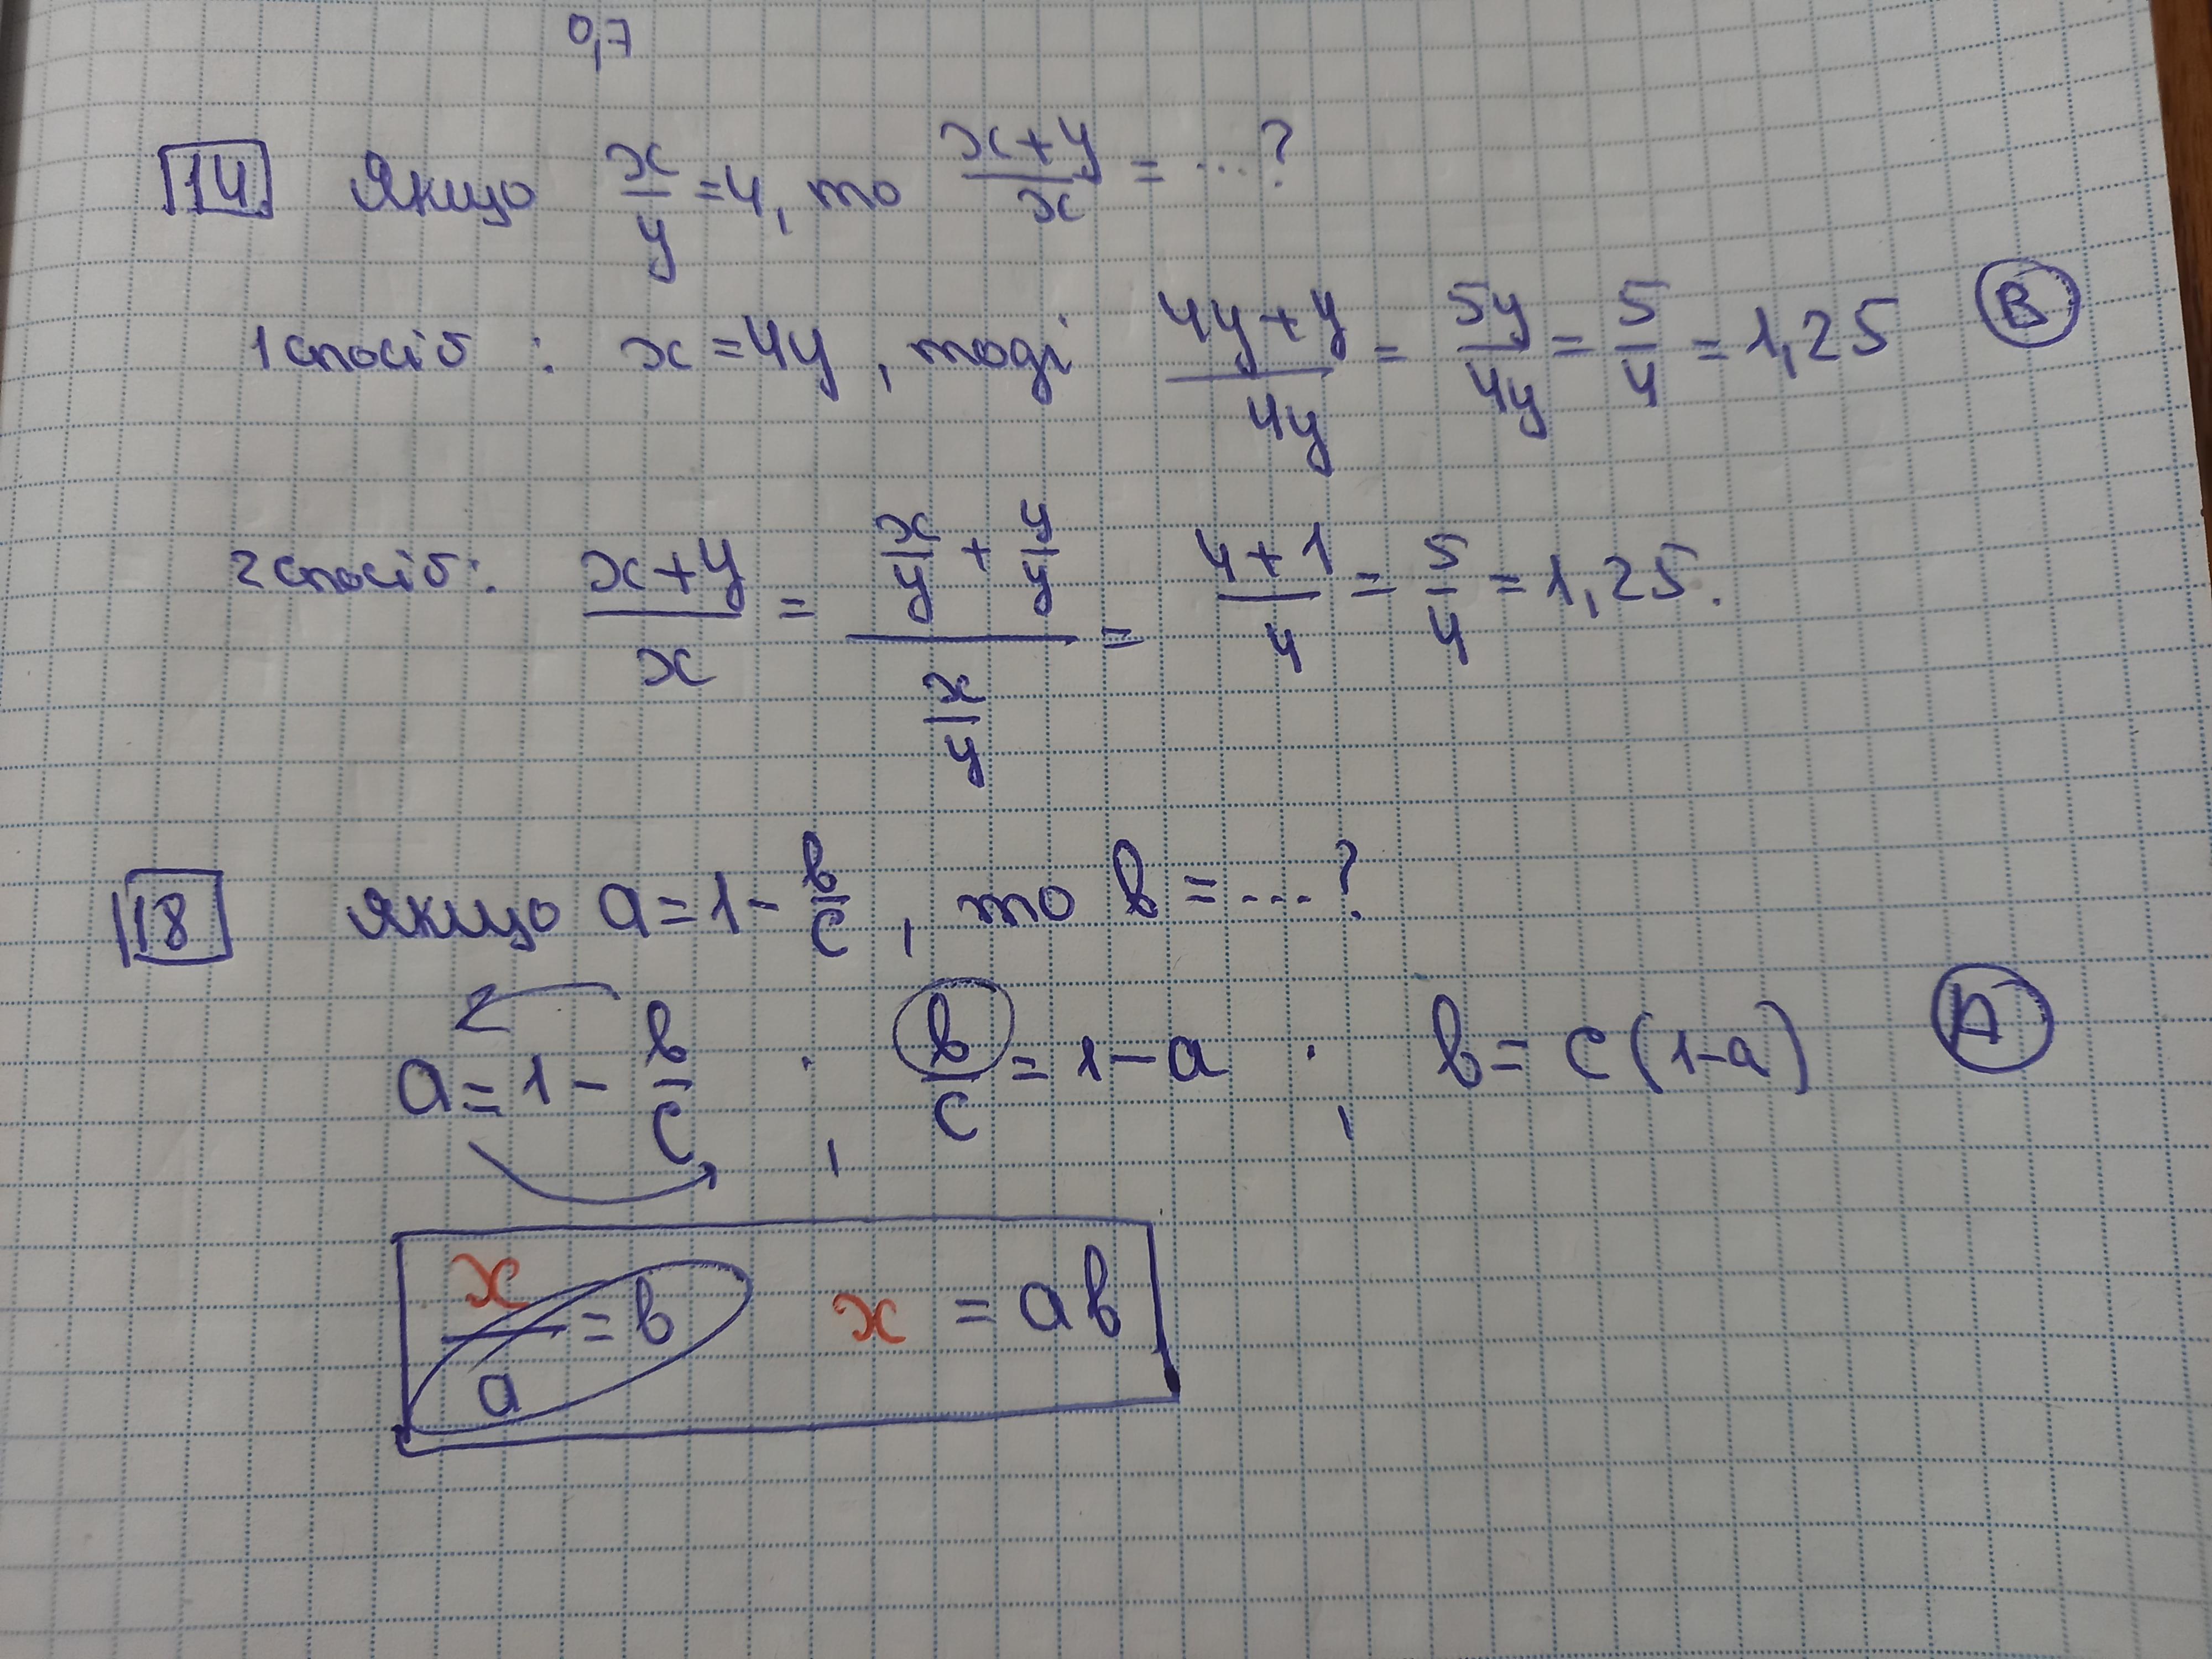 0,7
14 Якщо x/y = 4, то (x+y)/x = ...?
1 спосіб : x = 4y , тоді (4y+y)/4y = 5y/4y = 5/4 = 1,25 В
2 спосіб: (x+y)/x = (x/y + y/y)/(x/y) = (4+1)/4 = 5/4 = 1,25.
18 Якщо a = 1 - b/c , то b = ...?
a = 1 - b/c ; b/c = 1 - a ; b = c(1-a) А
x/a = b x = ab